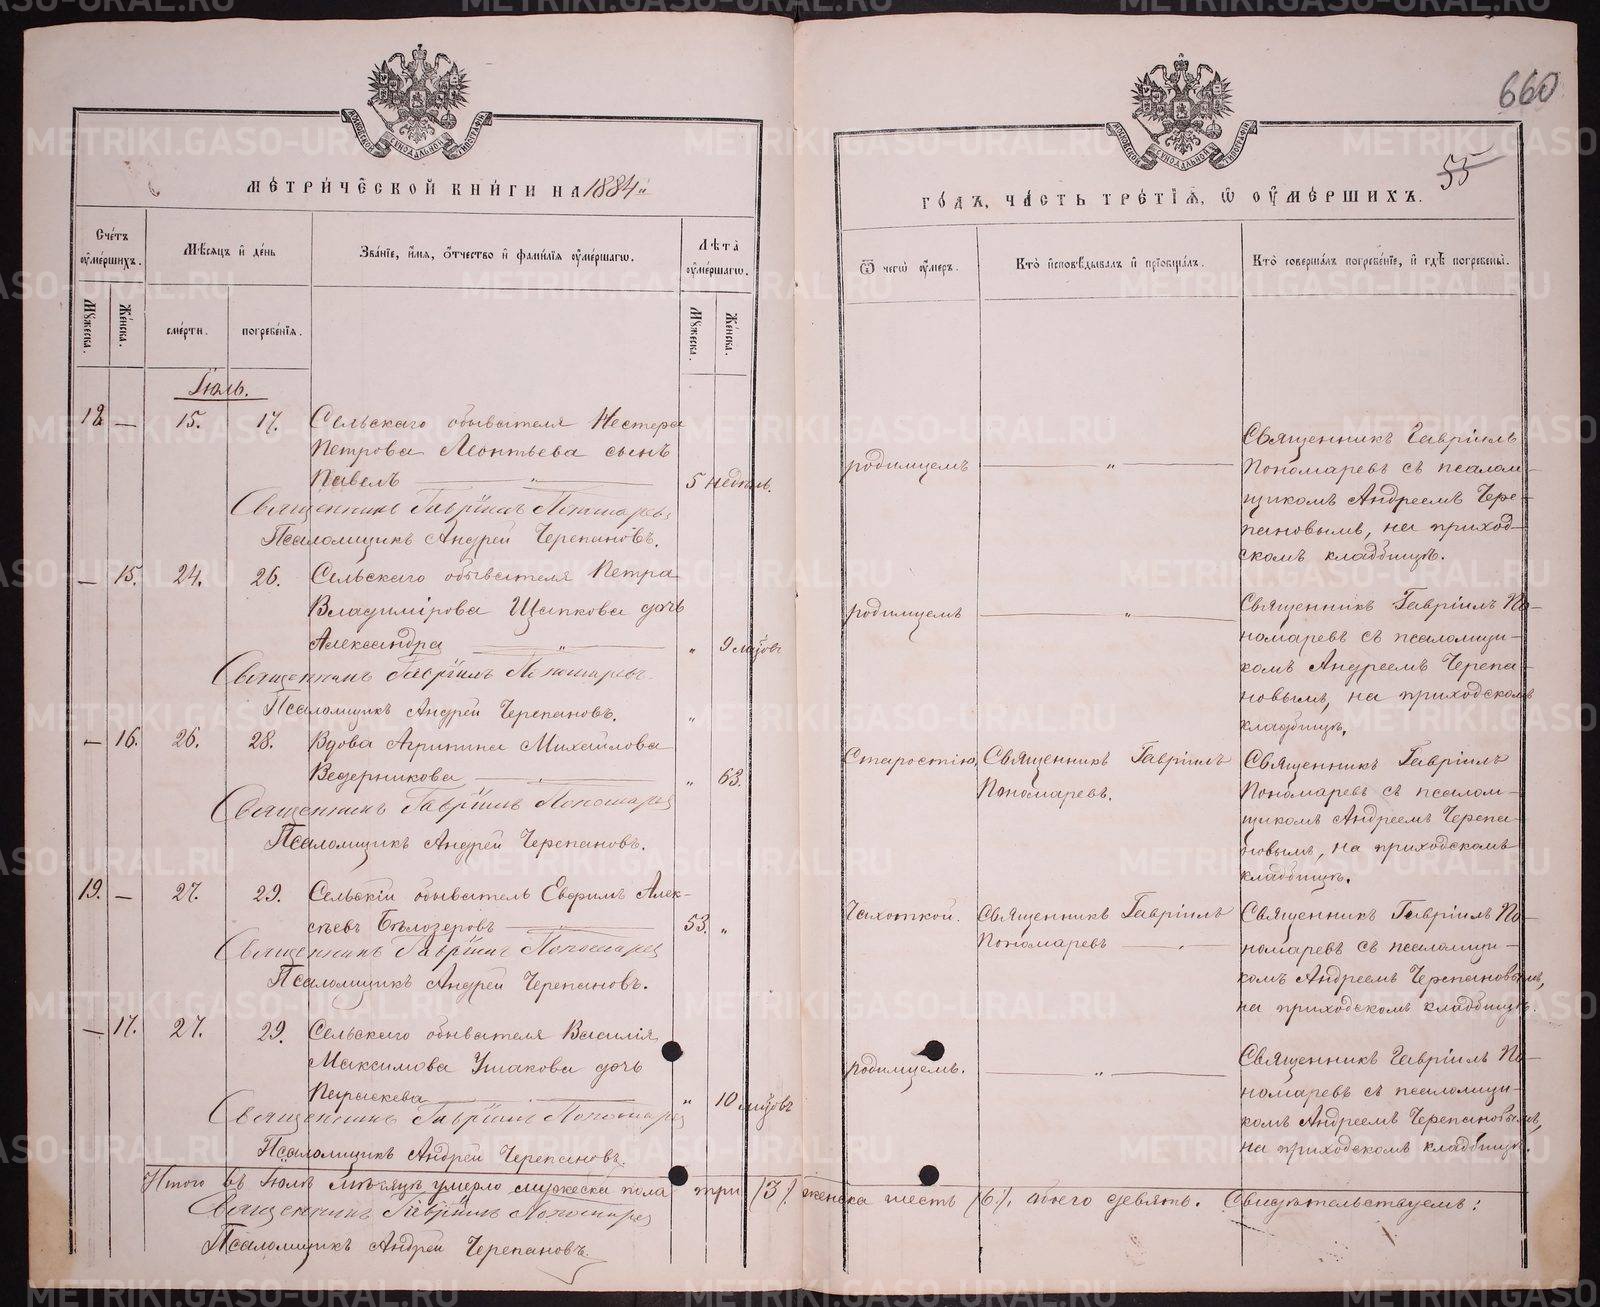 660
55
МЕТРИЧЕСКОЙ КНИГИ НА 1884
ГОДЪ, ЧАСТЬ ТРЕТІЯ, Ѿ ОУМЕРШИХЪ.
Счетъ оумершихъ.
Мѣсяцъ и день
Званіе, имя, отчество и фамилія оумершагѡ.
Лѣта оумершагѡ.
Ѿ чегѡ оумеръ.
Кто исповѣдывалъ и пріобщалъ.
Кто совершалъ погребеніе, и гдѣ погребены.
Мужеска.
Женска.
смерти.
погребенія.
Мужеска.
Женска.
Іюль.
18 — 15. 17. Сельскаго обывателя Нестера
Петрова Леонтьева сынъ
Павелъ — „ — 5 недѣль.
родимцемъ — „ —
Священникъ Гавріилъ
Пономаревъ съ псалом-
щикомъ Андреемъ Чере-
пановымъ, на приход-
скомъ кладбищѣ.
Священникъ Гавріилъ Пономаревъ
Псаломщикъ Андрей Черепановъ.
— 15. 24. 26. Сельскаго обывателя Петра
Владимірова Щапкова дочь
Александра — „ — „ 9 мѣцовъ
родимцемъ — „ —
Священникъ Гавріилъ По-
номаревъ съ псаломщи-
комъ Андреемъ Черепа-
новымъ, на приходскомъ
кладбищѣ.
Священникъ Гавріилъ Пономаревъ.
Псаломщикъ Андрей Черепановъ. „
— 16. 26. 28. Вдова Агрипина Михайлова
Ведерникова — „ — „ 63.
Старостію, Священникъ Гавріилъ
Пономаревъ.
Священникъ Гавріилъ
Пономаревъ съ псалом-
щикомъ Андреемъ Черепа-
новымъ, на приходскомъ
кладбищѣ.
Священникъ Гавріилъ Пономаревъ
Псаломщикъ Андрей Черепановъ.
19. — 27. 29. Сельскій обыватель Евфимъ Алек-
сѣевъ Бѣлозеровъ — 53. „
Чахоткой. Священникъ Гавріилъ
Пономаревъ — „ —
Священникъ Гавріилъ По-
номаревъ съ псаломщи-
комъ Андреемъ Черепановымъ,
на приходскомъ кладбищѣ.
Священникъ Гавріилъ Пономаревъ
Псаломщикъ Андрей Черепановъ.
— 17. 27. 29. Сельскаго обывателя Василія
Максимова Ушакова дочь
Параскева — „ 10 мѣцовъ
родимцемъ. — „ —
Священникъ Гавріилъ По-
номаревъ съ псаломщи-
комъ Андреемъ Черепановымъ,
на приходскомъ кладбищѣ.
Священникъ Гавріилъ Пономаревъ
Псаломщикъ Андрей Черепановъ.
Итого въ Іюлѣ мѣсяцѣ умерло мужеска пола три /3/, женска шесть /6/, обоего девять. Свидѣтельствуемъ:
Священникъ Гавріилъ Пономаревъ
Псаломщикъ Андрей Черепановъ.